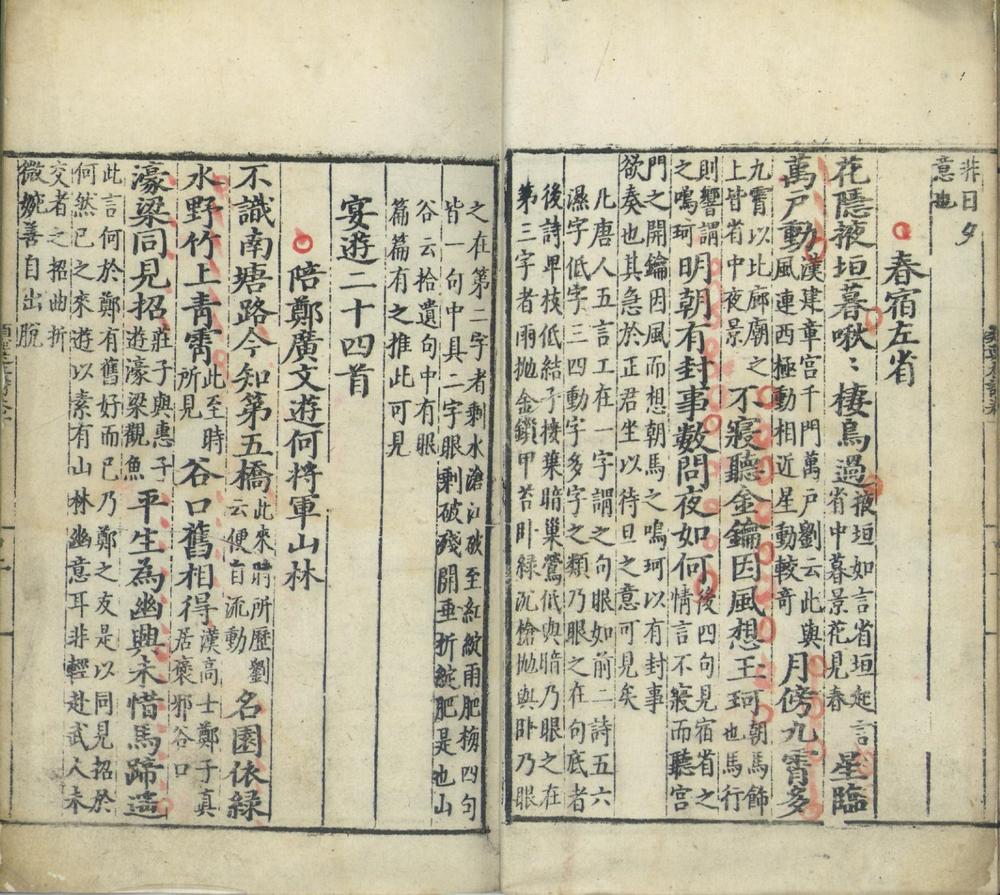 非日夕
意也
春宿左省
花隱掖垣暮啾〻棲鳥過掖垣如言省垣起言
省中暮景花見春星臨
萬戶動漢建章宮千門萬戶劉云此與
風連西極動相近星動較奇月傍九霄多
九霄以比廊廟之
上皆省中夜景不寢聽金鑰因風想玉珂朝馬飾
也馬行
則響謂
之鳴珂明朝有封事數問夜如何後四句見宿省之
情言不寢而聽宮
門之開鑰因風而想朝馬之鳴珂以有封事
欲奏也其急於正君坐以待旦之意可見矣
凡唐人五言工在一字謂之句眼如前二詩五六
濕字低字三四動字多字之類乃眼之在句底者
後詩卑枝低結子接葉暗巢鶯低與暗乃眼之在
第三字者雨拋金鎖甲苔卧綠沉槍拋與卧乃眼
之在第二字者剩水滄江破至紅綻雨肥梅四句
皆一句中具二字眼剩破殘開垂折綻肥是也山
谷云拾遺句中有眼
篇篇有之推此可見
宴遊二十四首
陪鄭廣文遊何將軍山林
不識南塘路今知第五橋此來時所歷劉
云便自流動名園依綠
水野竹上青霄此至時
所見谷口舊相得漢高士鄭子真
居褒邪谷口
濠梁同見招莊子與惠子
遊濠梁觀魚平生為幽興未惜馬蹄遥
此言何於鄭有舊好而已乃鄭之友是以同見招於
何然已之來遊以素有山林幽意耳非輕赴武人未
交者之招曲折
微婉善自出脫